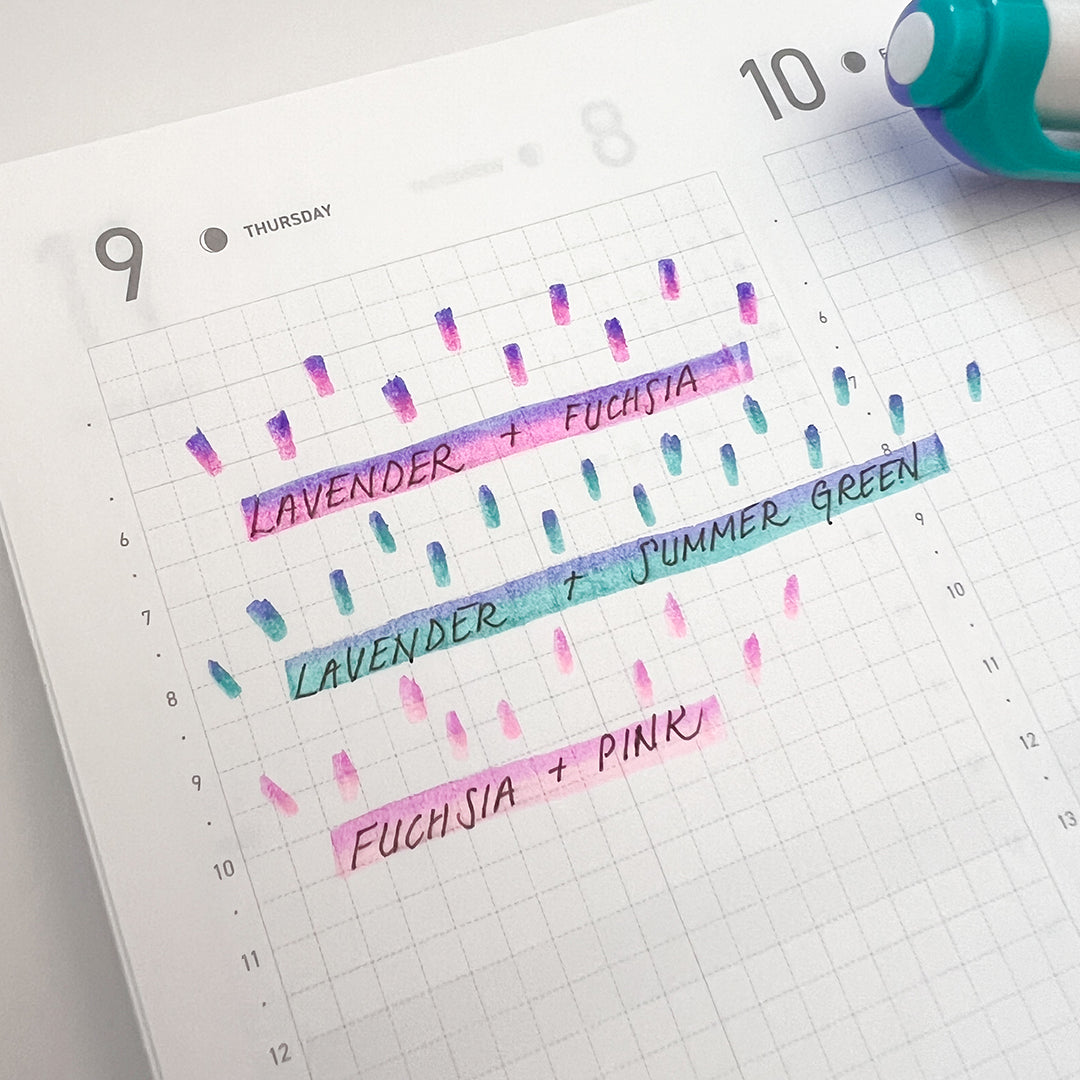 9 THURSDAY
10
LAVENDER + FUCHSIA
LAVENDER + SUMMER GREEN
FUCHSIA + PINK
6
7
8
9
10
11
12
6
7
8
9
10
11
12
13
8